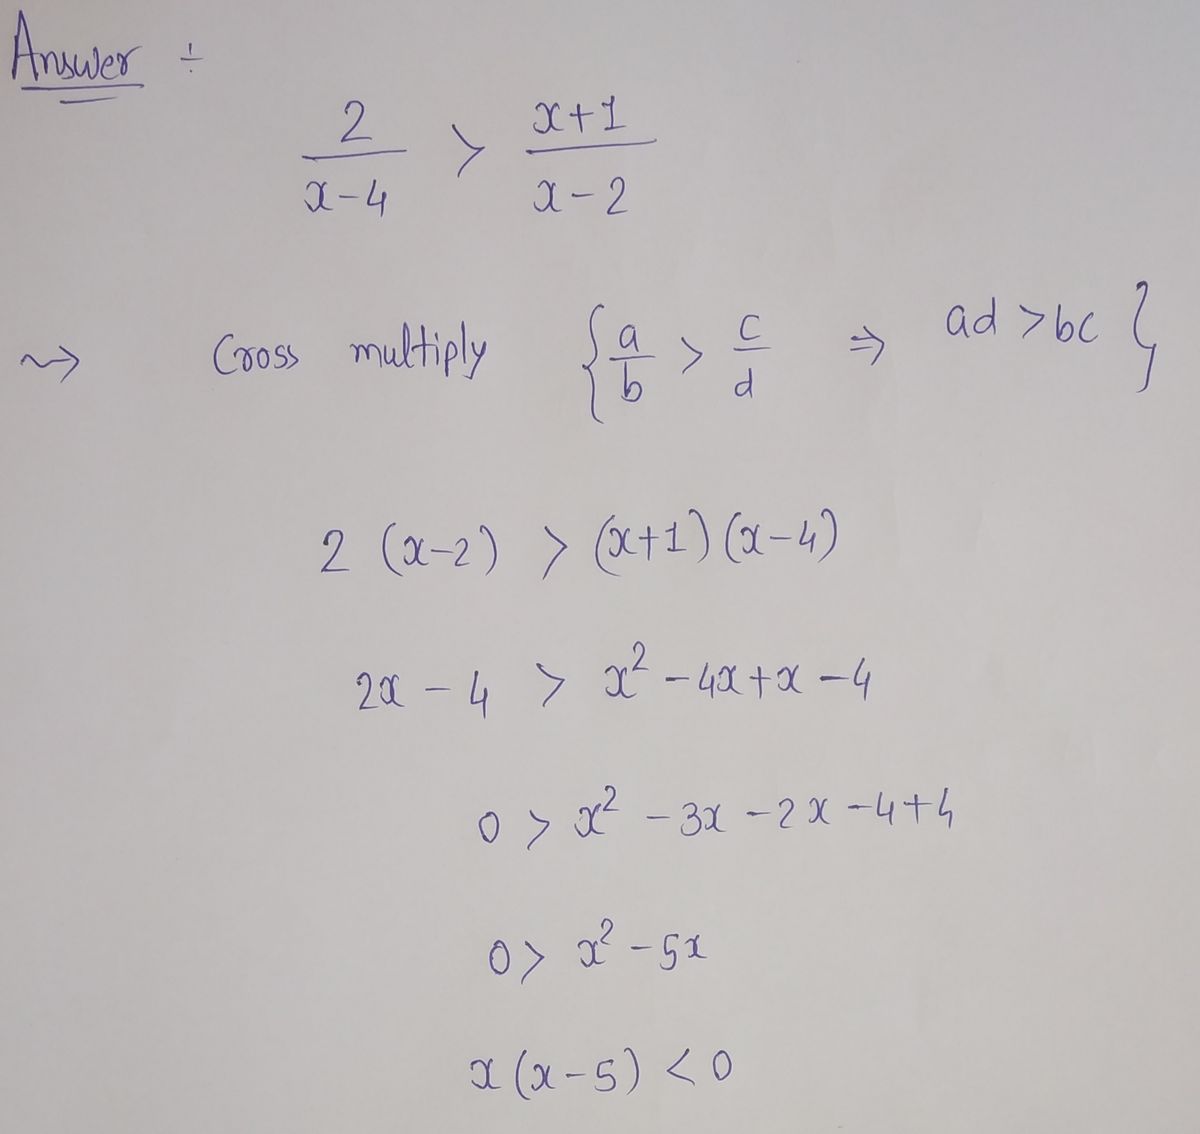 Answer ÷
2/(x-4) > (x+1)/(x-2)
⇝ Cross multiply { a/b > c/d ⇒ ad > bc }
2 (x-2) > (x+1) (x-4)
2x - 4 > x² - 4x + x - 4
0 > x² - 3x - 2x - 4 + 4
0 > x² - 5x
x (x-5) < 0